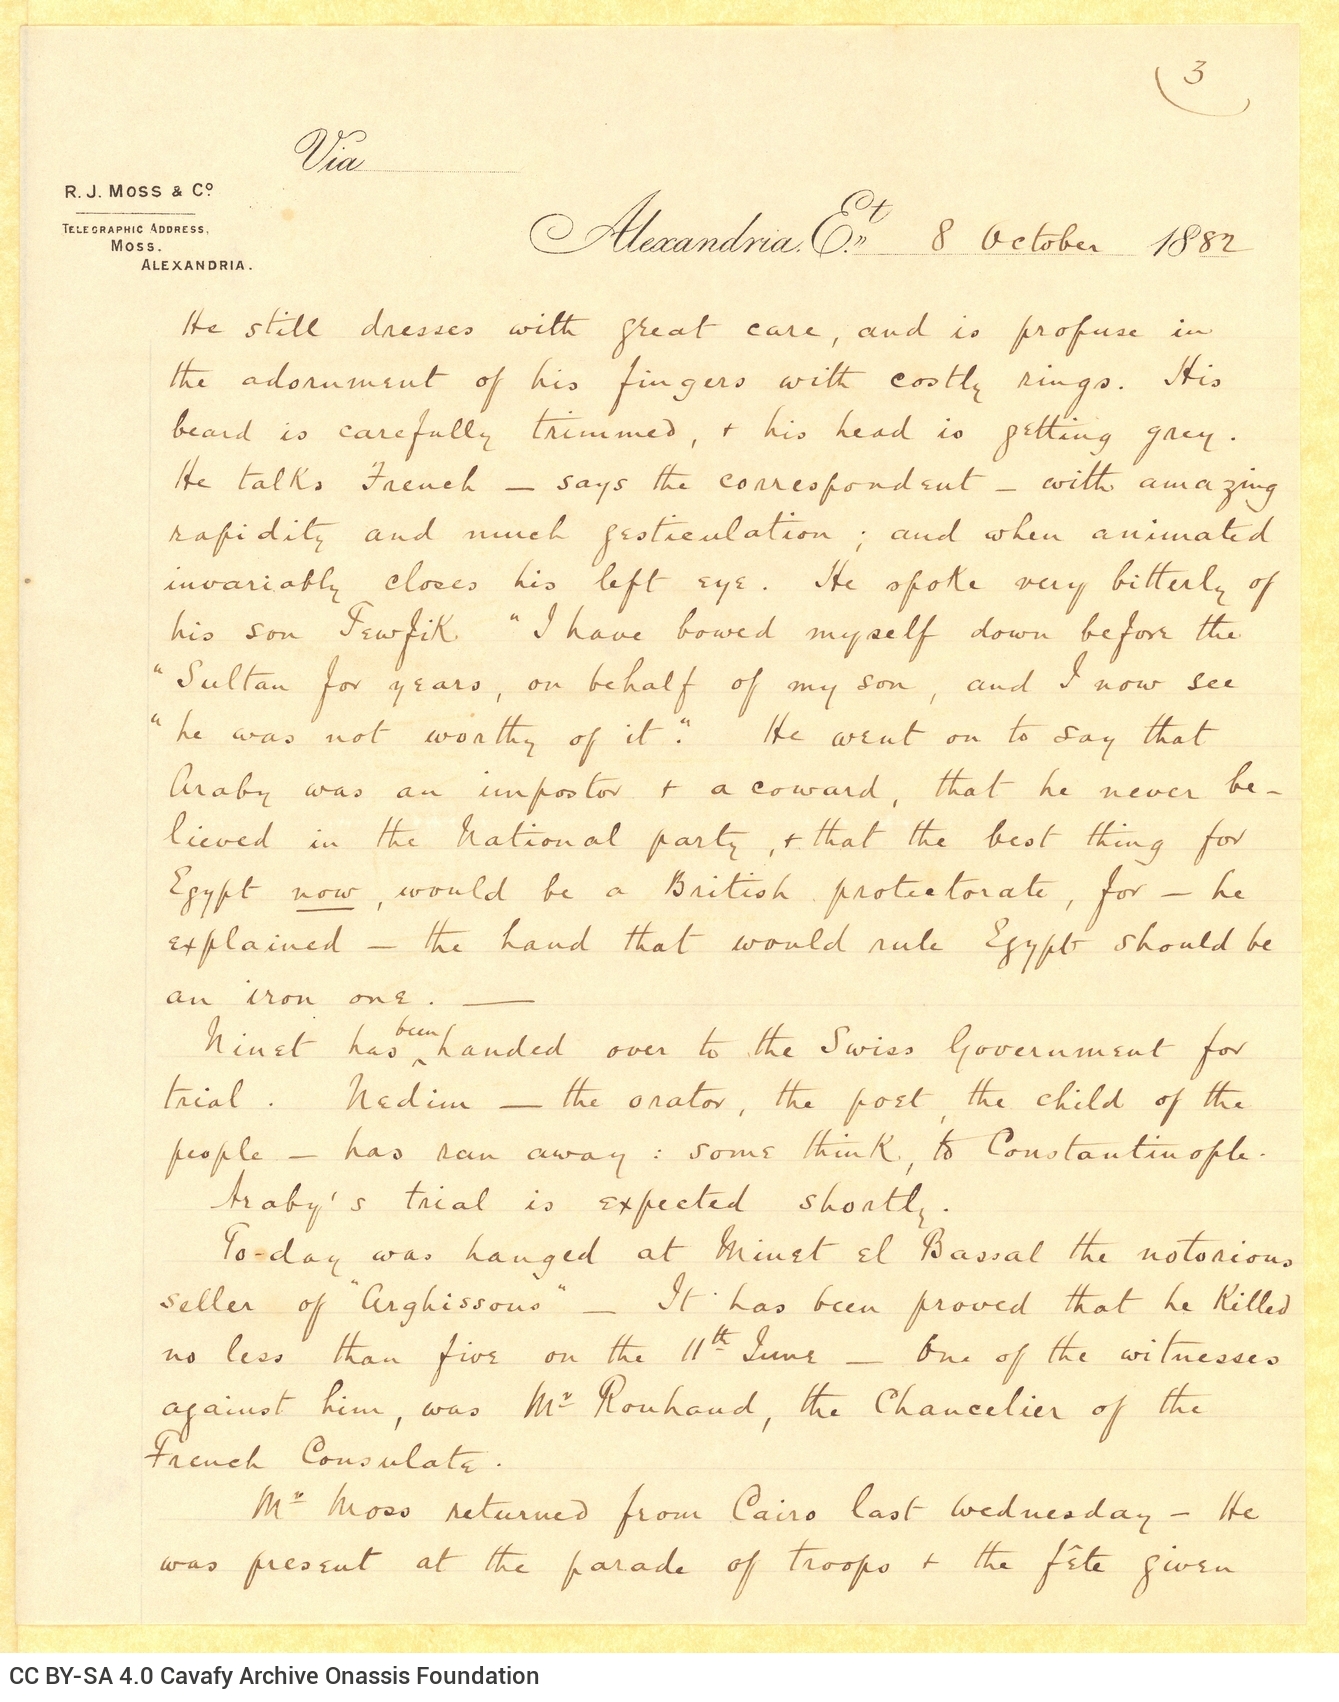 3
Via
R. J. MOSS & Cº
TELEGRAPHIC ADDRESS,
MOSS.
ALEXANDRIA.
Alexandria. Et 8 October 1882
He still dresses with great care, and is profuse in
the adornment of his fingers with costly rings. His
beard is carefully trimmed, + his head is getting grey.
He talks French — says the correspondent — with amazing
rapidity and much gesticulation ; and when animated
invariably closes his left eye. He spoke very bitterly of
his son Tewfik "I have bowed myself down before the
"Sultan for years, on behalf of my son, and I now see
"he was not worthy of it". He went on to say that
Araby was an impostor + a coward, that he never be-
lieved in the National party, + that the best thing for
Egypt now, would be a British protectorate, for — he
explained — the hand that would rule Egypt should be
an iron one. —
Ninet has been handed over to the Swiss Government for
trial. Nedim — the orator, the poet, the child of the
people — has ran away : some think, to Constantinople.
Araby's trial is expected shortly.
To-day was hanged at Minet el Bassal the notorious
seller of "Arghissons" — It has been proved that he killed
no less than five on the 11th June — One of the witnesses
against him, was Mr Rouhaud, the Chancelier of the
French Consulate.
Mr Moss returned from Cairo last Wednesday — He
was present at the parade of troops + the fête given
CC BY-SA 4.0 Cavafy Archive Onassis Foundation